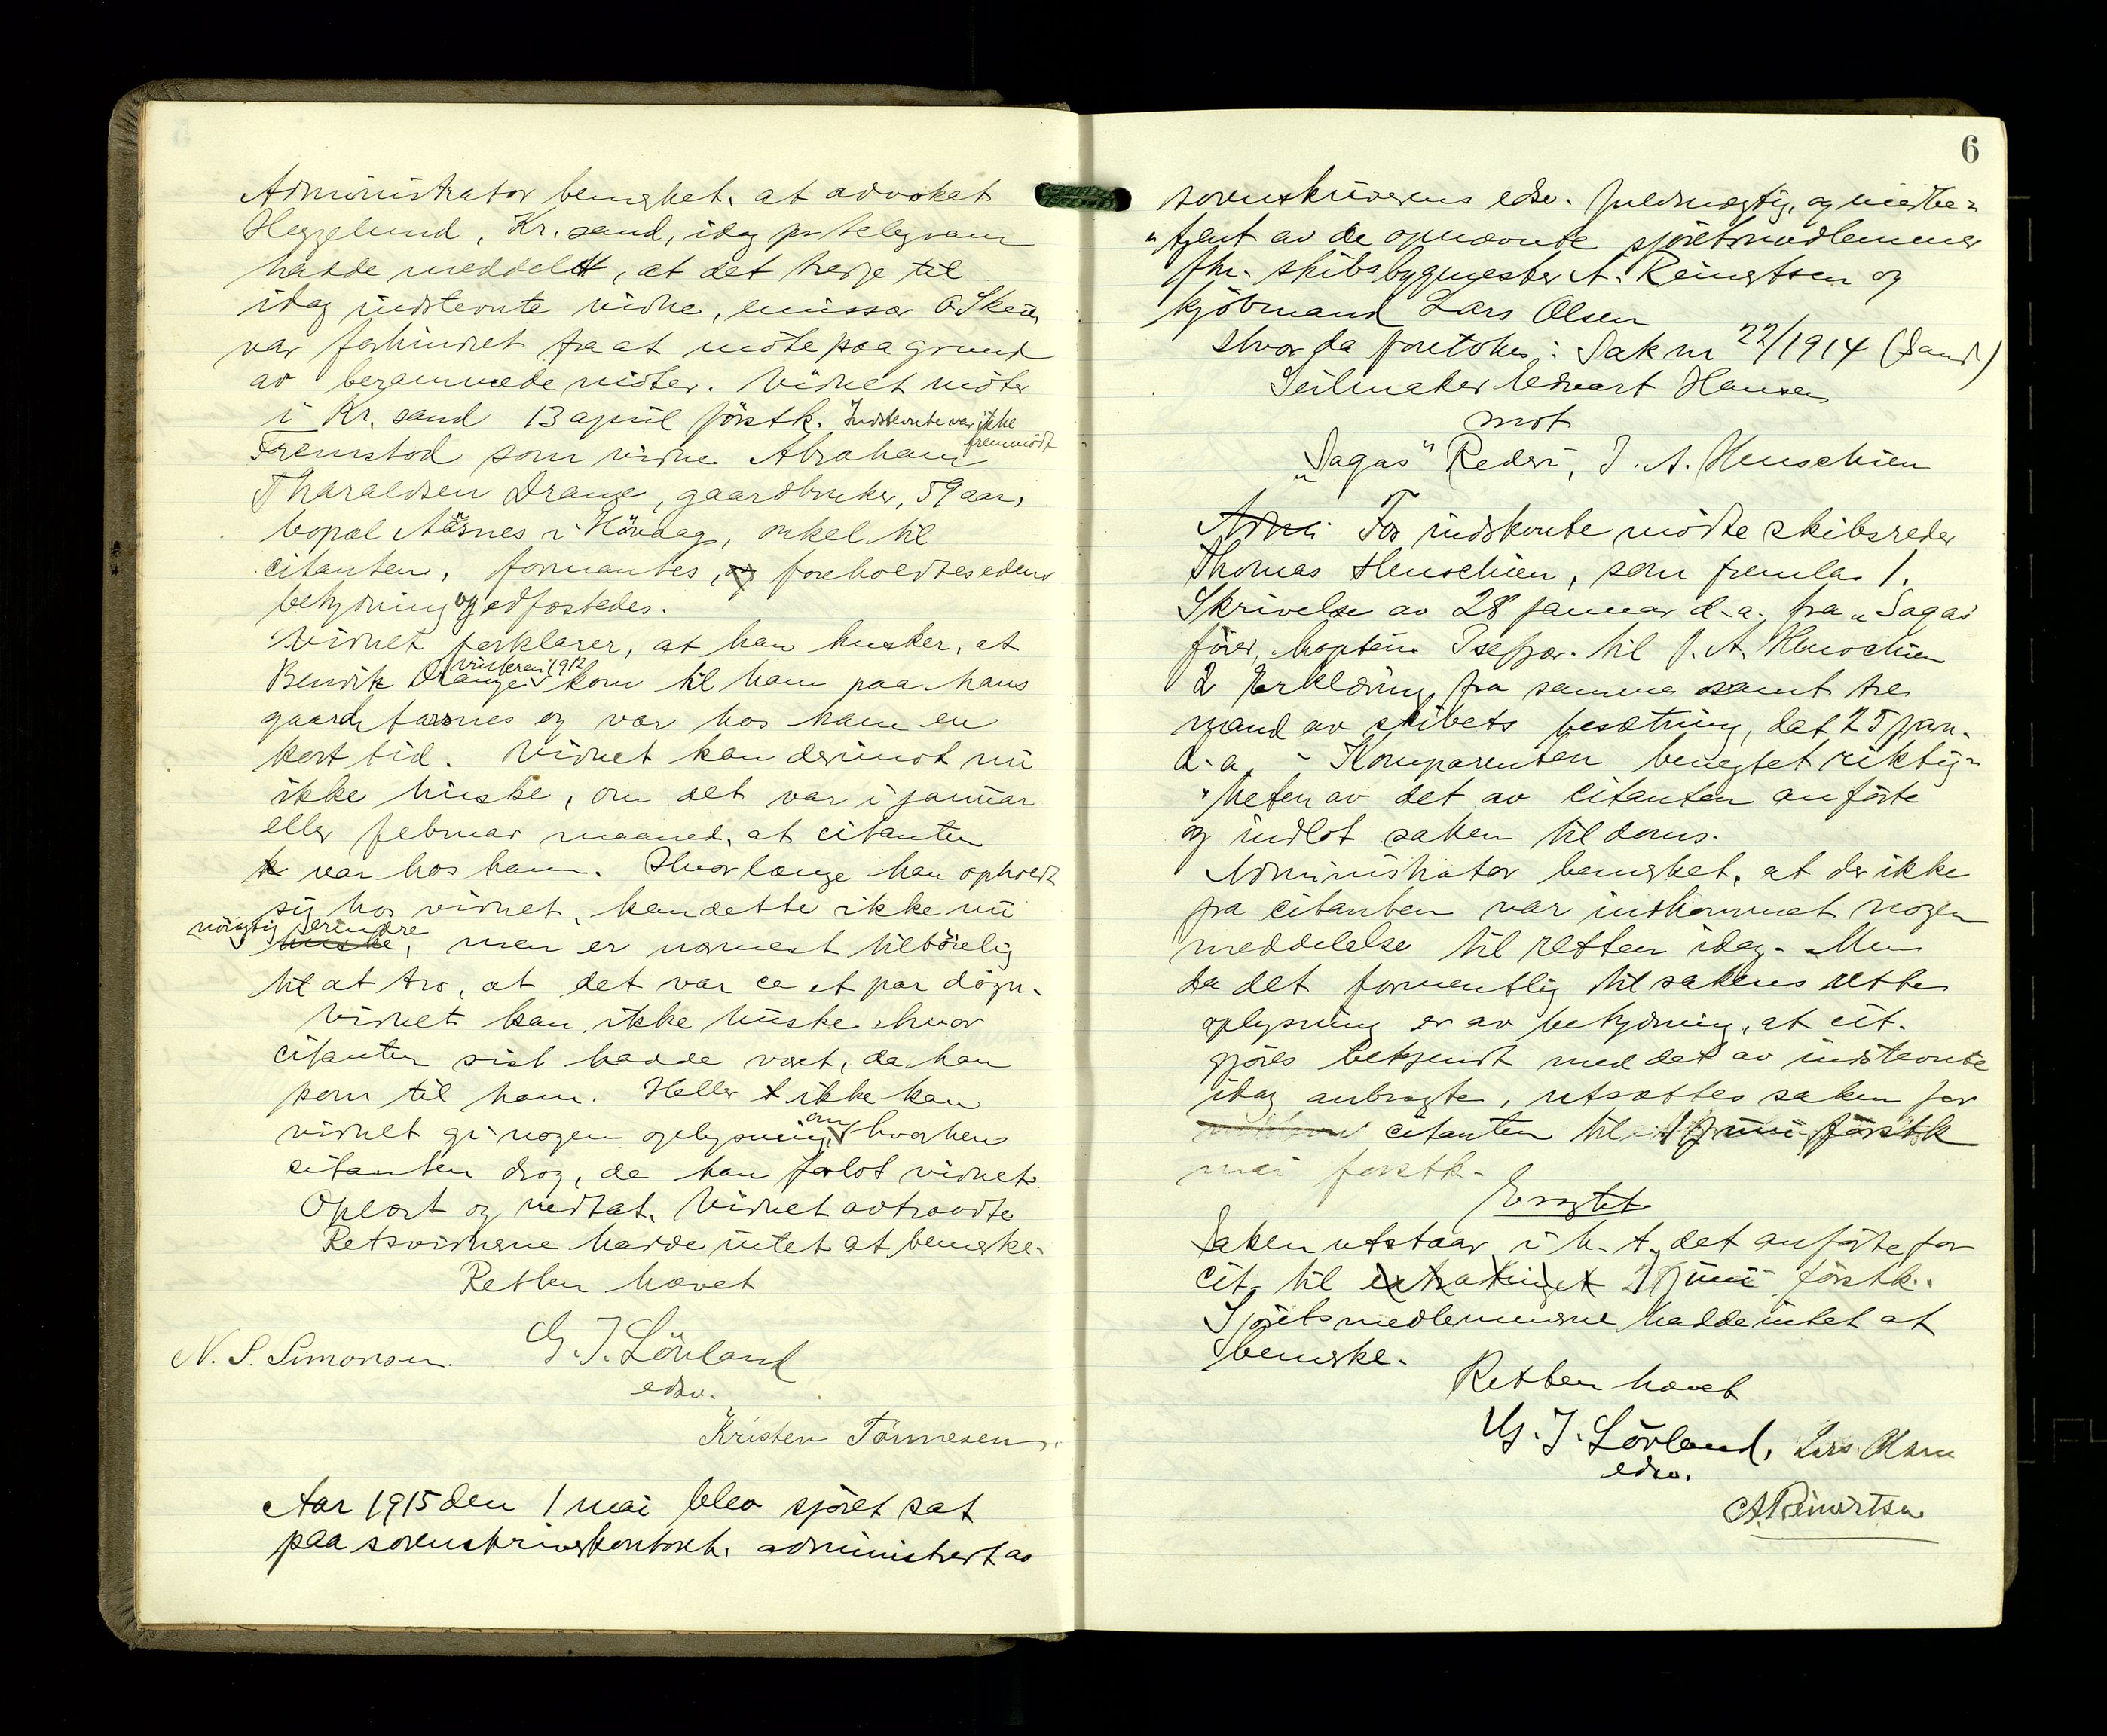 Administrator bemerket, at advokat
Heggelund, Kr.sand, idag pr telegram
hadde meddelt, at det tredje til
idag indstevnte vidne, emissær O. Skeie
var forhindret fra at møte paa grund
av berammede møter. Vidnet møter
i Kr. sand 13 april førstk. Indstevnte var ikke
fremmødt
Fremstod som vidne Abraham
Tharaldsen Drange, gaardbruker, 59 aar,
bopæl Aasnes i Høvaag, onkel til
citanten, formantes, foreholdtes edens
betydning og edfæstedes.
Vidnet forklarer, at han husker, at
vinteren 1912
Bendik Drange kom til ham paa hans
gaard og var hos ham en
kort tid. Vidnet kan derimot nu
ikke huske, om det var i januar
eller februar maaned, at citanten
var hos ham. Hvor længe han opholdt
sig hos vidnet, kan dette ikke nu
nøiagtig erindre
huske, men er nærmest tilbøielig
til at tro, at det var ca et par døgn.
Vidnet kan ikke huske hvor
citanten sist hadde været, da han
kom til ham. Heller ikke kan
vidnet gi nogen oplysning om hvorhen
citanten drog, da han forlot vidnet.
Oplæst og vedtat. Vidnet avtraadte
Retsvidnerne hadde intet at bemerke.
Retten hævet
N. S. Simonsen. G. J. Lövland
edsv.
Kristen Tönnesen.
Aar 1915 den 1 mai blev sjøret sat
paa sorenskriverkontoret, administrert av
6
sorenskriverens edsv. fuldmægtig, og medbe=
"tjent av de opnævnte sjøretsmedlemmer
hr. skibsbygmester A. Reinertsen og
kjøbmand Lars Olsen
Hvor da foretokes: Sak nr 22/1914 (Sand)
Seilmaker Edvart Hansen
mot
"Sagas" Rederi, J. A. Henschien
Adm. For indstevnte mødte skibsreder
Thomas Henschien, som fremla 1.
Skrivelse av 28 januar d.a. fra "Sagas
fører, kaptein til J. A. Henschien
2 Erklæring fra samme samt tre
mand av skibets besætning, dat 25 jan.
d.a. - Komparenten benegtet riktig=
"heten av det av citanten anførte
og indlot saken til doms.
Administrator bemerket, at der ikke
fra citanten var indkommet nogen
meddelelse til retten idag. Men
da det formentlig til sakens rette
oplysning er av betydning, at cit.
gjøres bekjendt med det av indstevnte
idag anbragte, utsættes saken for
citanten til 1 juni førstk
mai førstk.
Eragtet
Saken utstaar i h. t. det anførte for
cit. til extratinget 1 juni førstk.
Sjøretsmedlemmerne hadde intet at
bemerke.
Retten hævet
G. J. Lövland, Lars Olsen
edsv.
A Reinertsen